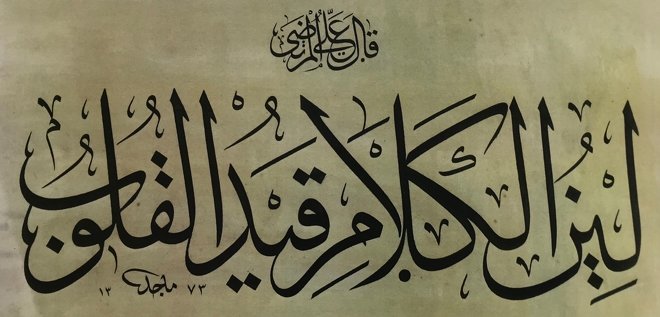 قال علي المرتضى
لِينُ الكَلَامِ قَيْدُ القُلُوب
١٣ ماجد ٧٣